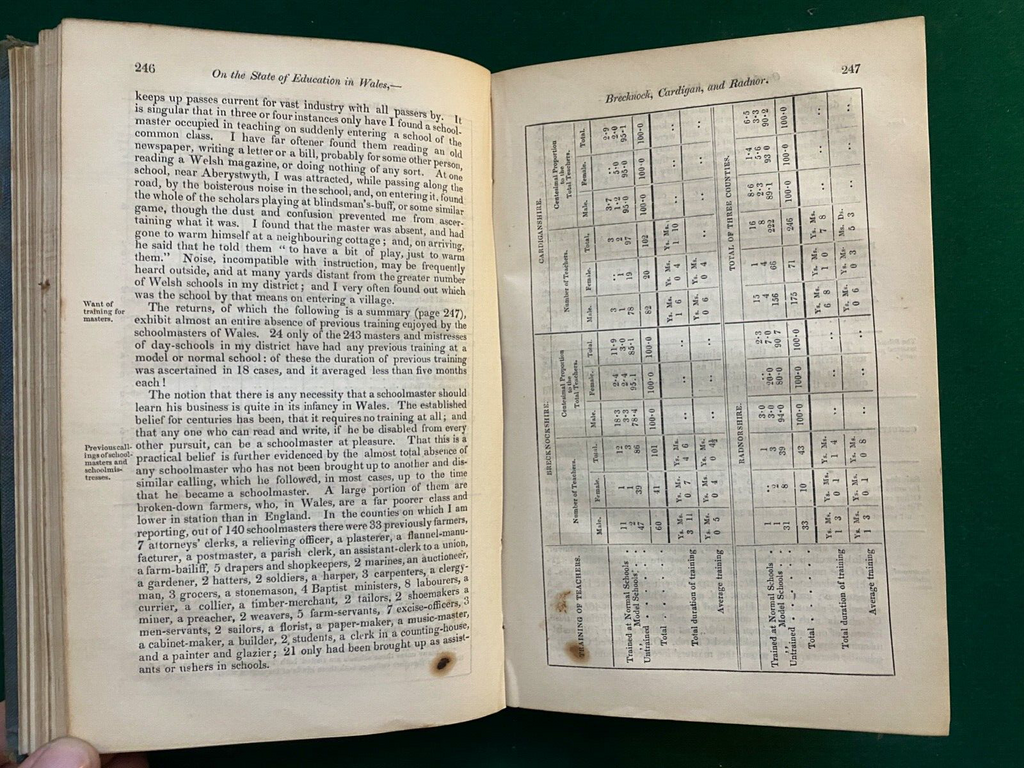 246
On the State of Education in Wales,—
keeps up passes current for vast industry with all passers by. It
is singular that in three or four instances only have I found a school-
master occupied in teaching on suddenly entering a school of the
common class. I have far oftener found them reading an old
newspaper, writing a letter or a bill, probably for some other person,
reading a Welsh magazine, or doing nothing of any sort. At one
school, near Aberystwyth, I was attracted, while passing along the
road, by the boisterous noise in the school, and, on entering it, found
the whole of the scholars playing at blindsman's-buff, or some similar
game, though the dust and confusion prevented me from ascer-
taining what it was. I found that the master was absent, and had
gone to warm himself at a neighbouring cottage; and, on arriving,
he said that he told them "to have a bit of play, just to warm
them." Noise, incompatible with instruction, may be frequently
heard outside, and at many yards distant from the greater number
of Welsh schools in my district; and I very often found out which
was the school by that means on entering a village.
Want of
training for
masters.
The returns, of which the following is a summary (page 247),
exhibit almost an entire absence of previous training enjoyed by the
schoolmasters of Wales. 24 only of the 243 masters and mistresses
of day-schools in my district have had any previous training at a
model or normal school: of these the duration of previous training
was ascertained in 18 cases, and it averaged less than five months
each!
The notion that there is any necessity that a schoolmaster should
learn his business is quite in its infancy in Wales. The established
belief for centuries has been, that it requires no training at all; and
that any one who can read and write, if he be disabled from every
other pursuit, can be a schoolmaster at pleasure. That this is a
Previous call-
ings of school-
masters and
schoolmis-
tresses.
practical belief is further evidenced by the almost total absence of
any schoolmaster who has not been brought up to another and dis-
similar calling, which he followed, in most cases, up to the time
that he became a schoolmaster. A large portion of them are
broken-down farmers, who, in Wales, are a far poorer class and
lower in station than in England. In the counties on which I am
reporting, out of 140 schoolmasters there were 33 previously farmers,
7 attorneys' clerks, a relieving officer, a plasterer, a flannel-manu-
facturer, a postmaster, a parish clerk, an assistant-clerk to a union,
a farm-bailiff, 5 drapers and shopkeepers, 2 marines, an auctioneer,
a gardener, 2 hatters, 2 soldiers, a harper, 3 carpenters, a clergy-
man, 3 grocers, a stonemason, 4 Baptist ministers, 8 labourers, a
currier, a collier, a timber-merchant, 2 tailors, 2 shoemakers a
miner, a preacher, 2 weavers, 5 farm-servants, 7 excise-officers, 3
men-servants, 2 sailors, a florist, a paper-maker, a music-master,
a cabinet-maker, a builder, 2 students, a clerk in a counting-house,
and a painter and glazier; 21 only had been brought up as assist-
ants or ushers in schools.
247
Brecknock, Cardigan, and Radnor.
TRAINING OF TEACHERS.
BRECKNOCKSHIRE. CARDIGANSHIRE.
Number of Teachers. Centesimal Proportion to the Total Teachers. Number of Teachers. Centesimal Proportion to the Total Teachers.
Male. Female. Total. Male. Female. Total. Male. Female. Total. Male. Female. Total.
Trained at Normal Schools . 11 1 12 18·3 2·4 11·9 3 .. 3 3·7 .. 2·9
,, Model Schools . 2 1 3 3·3 2·4 3·0 1 1 2 1·2 5·0 2·0
Untrained . . . . 47 39 86 78·4 95.1 85·1 78 19 97 95·0 95·0 95·1
Total . . . . 60 41 101 100·0 100·0 100·0 82 20 102 100·0 100·0 100·0
Ys. Ms. Ys. Ms. Ys. Ms. Ys. Ms. Ys. Ms. Ys. Ms.
Total duration of training 3 11 0 7 4 6 .. .. .. 1 6 0 4 1 10 .. .. ..
Ys. Ms. Ys. Ms. Ys. Ms. Ys. Ms. Ys. Ms.
Average training 0 5 0 4 0 4½ .. .. .. 0 6 0 4 .. .. .. ..
RADNORSHIRE. TOTAL OF THREE COUNTIES.
Trained at Normal Schools . 1 .. 1 3·0 .. 2·3 15 1 16 8·6 1·4 6·5
,, Model Schools . 1 2 3 3·0 20·0 7·0 4 4 8 2·3 5·6 3·3
Untrained . . . . 31 8 39 94·0 80·0 90 7 156 66 222 89·1 93 0 90·2
Total . . . . 33 10 43 100·0 100·0 100·0 175 71 246 100·0 100·0 100·0
Ys. Ms. Ys. Ms. Ys. Ms. Ys. Ms. Ys. Ms. Ys. Ms.
Total duration of training 1 3 0 1 1 4 .. .. .. 6 8 1 0 7 8 .. .. ..
Ys. Ms. Ys. Ms. Ys. Ms. Ys. Ms. Ys. Ms. Ms. D.
Average training 1 3 0 1 0 8 .. .. .. 0 6 0 3 5 3 .. .. ..